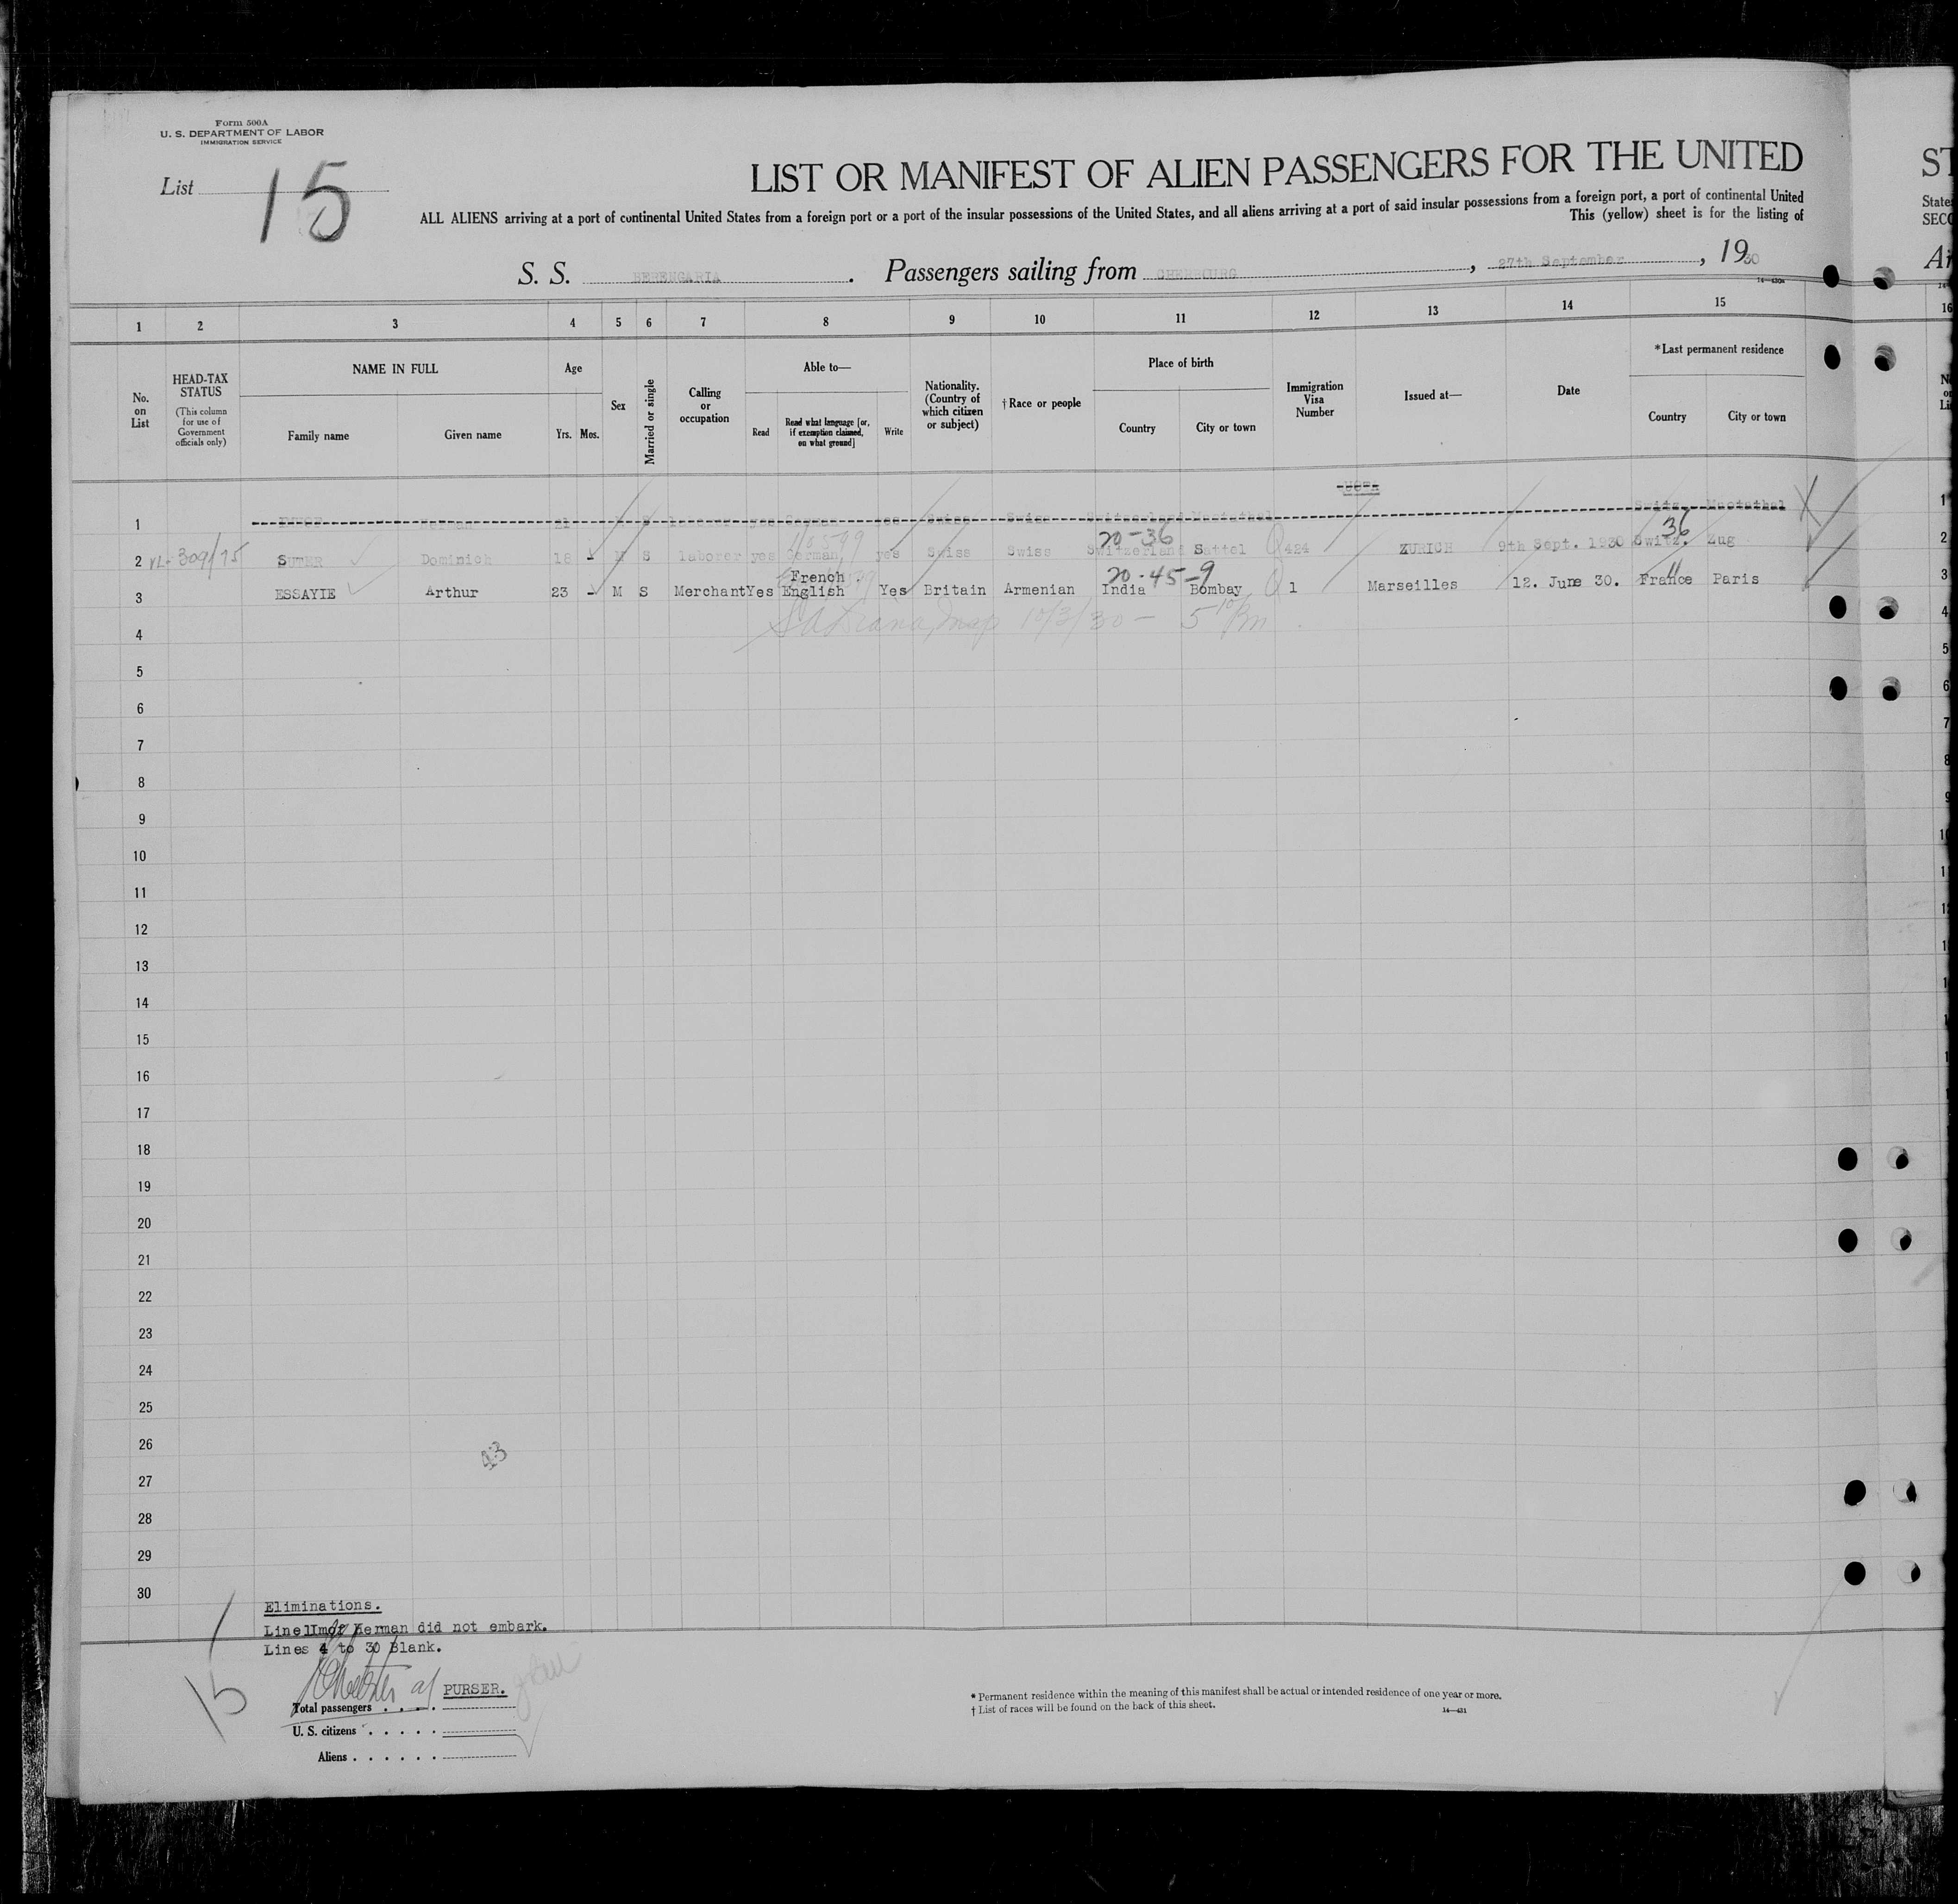 Form 500A
U. S. DEPARTMENT OF LABOR
IMMIGRATION SERVICE
List 15
LIST OR MANIFEST OF ALIEN PASSENGERS FOR THE UNITED
ALL ALIENS arriving at a port of continental United States from a foreign port or a port of the insular possessions of the United States, and all aliens arriving at a port of said insular possessions from a foreign port, a port of continental United
This (yellow) sheet is for the listing of
S. S. BERENGARIA. Passengers sailing from CHERBOURG, 27th September, 1930
14—430a
1 2 3 4 5 6 7 8 9 10 11 12 13 14 15
No. on List
HEAD-TAX STATUS
(This column for use of Government officials only)
NAME IN FULL
Family name Given name
Age
Yrs. Mos.
Sex
Married or single
Calling or occupation
Able to—
Read
Read what language [or, if exemption claimed, on what ground]
Write
Nationality. (Country of which citizen or subject)
†Race or people
Place of birth
Country City or town
Immigration Visa Number
Issued at—
Date
*Last permanent residence
Country City or town
1 21 M S laborer yes German yes Swiss Swiss Switzerland Muotathal Switz. Muotathal
20-36 36
2 309/75 SUTER Dominich 18 - M S laborer yes German yes Swiss Swiss Switzerland Sattel 424 ZURICH 9th Sept. 1930 Switz. Zug
French. 20-45-9 11
3 ESSAYIE Arthur 23 - M S Merchant Yes English Yes Britain Armenian India Bombay 1 Marseilles 12. June 30. France Paris
10/3/30 - 5
4
5
6
7
8
9
10
11
12
13
14
15
16
17
18
19
20
21
22
23
24
25
26
43
27
28
29
30
Eliminations.
Herman did not embark.
Lines 4 to 30 Blank.
15
PURSER.
Total passengers . . . .
U. S. citizens . . . . .
Aliens . . . . . .
* Permanent residence within the meaning of this manifest shall be actual or intended residence of one year or more.
† List of races will be found on the back of this sheet.
14—431
ST
State
SECO
16
1
2
3
4
5
6
7
8
9